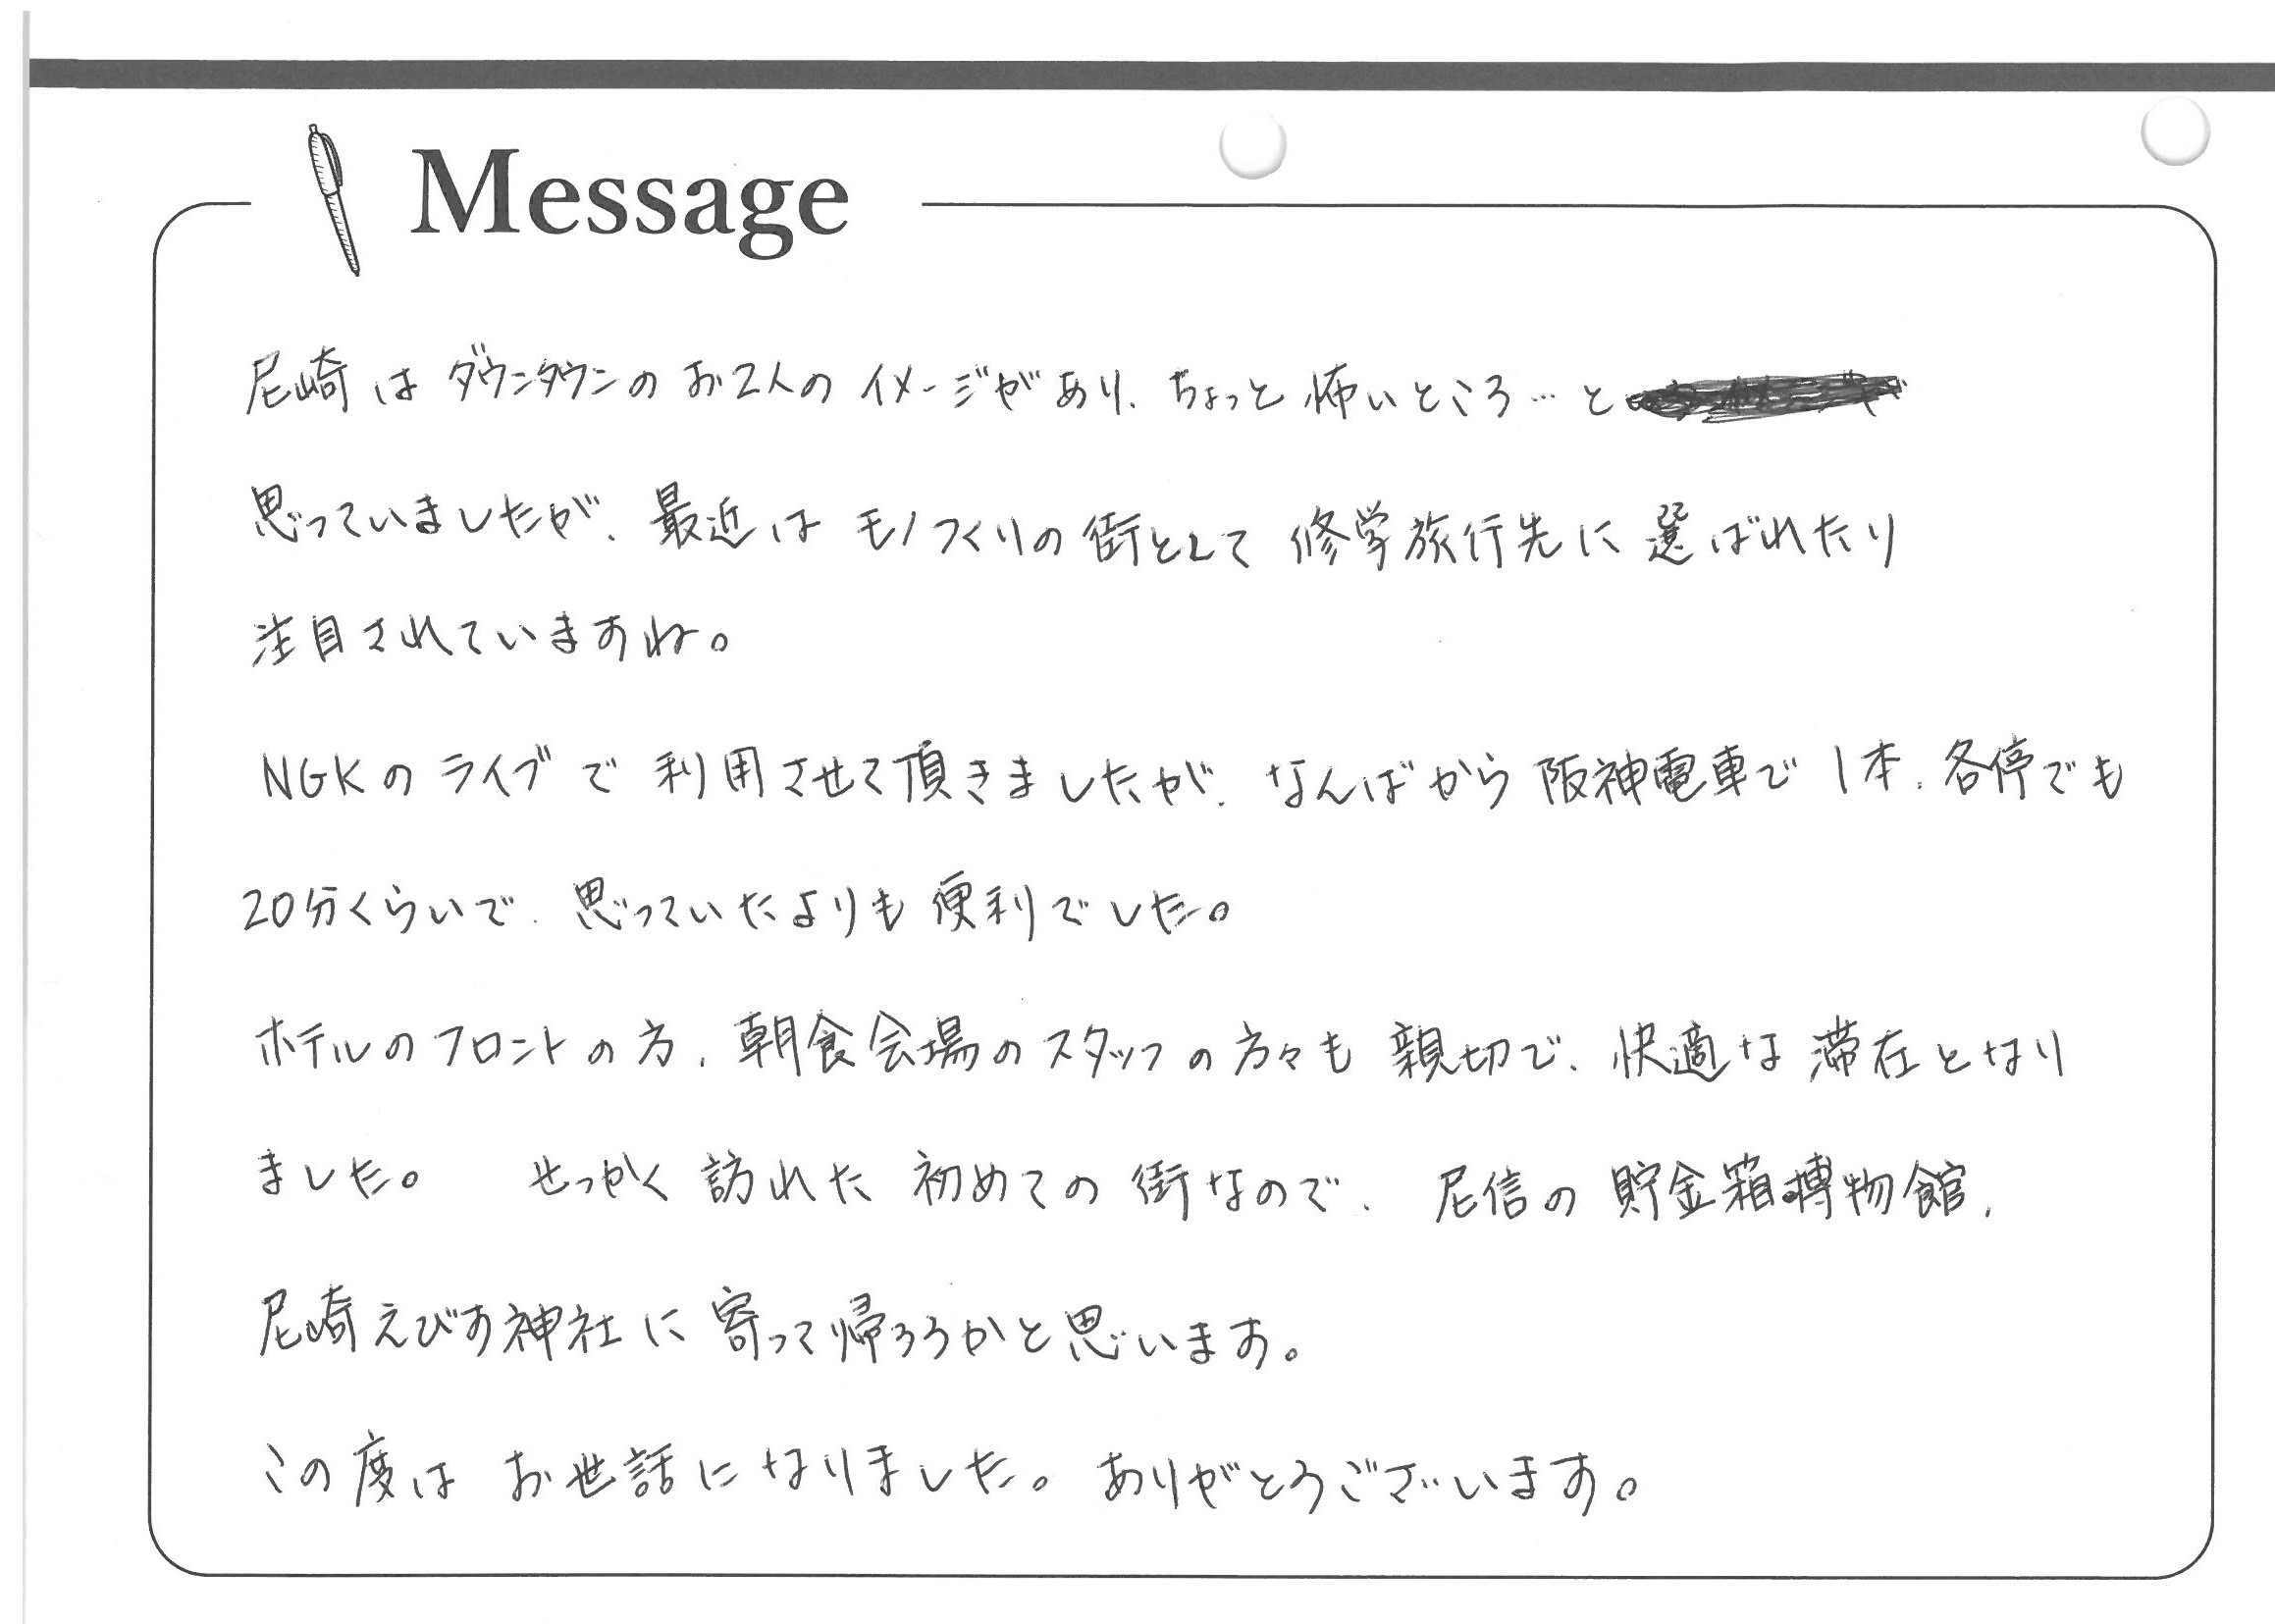 Message
尼崎は ダウンタウンの お2人の イメージがあり、ちょっと 怖いところ…と
思っていましたが、最近は モノづくりの 街として 修学旅行先に 選ばれたり
注目されていますね。
NGKの ライブで 利用させて頂きましたが、なんばから 阪神電車で 1本、各停でも
20分くらいで、思っていたよりも 便利でした。
ホテルのフロントの方、朝食会場のスタッフの方々も 親切で、快適な 滞在となり
ました。 せっかく 訪れた 初めての 街なので、尼信の 貯金箱博物館、
尼崎えびす神社に 寄って帰ろうかと思います。
この度は お世話になりました。ありがとうございます。